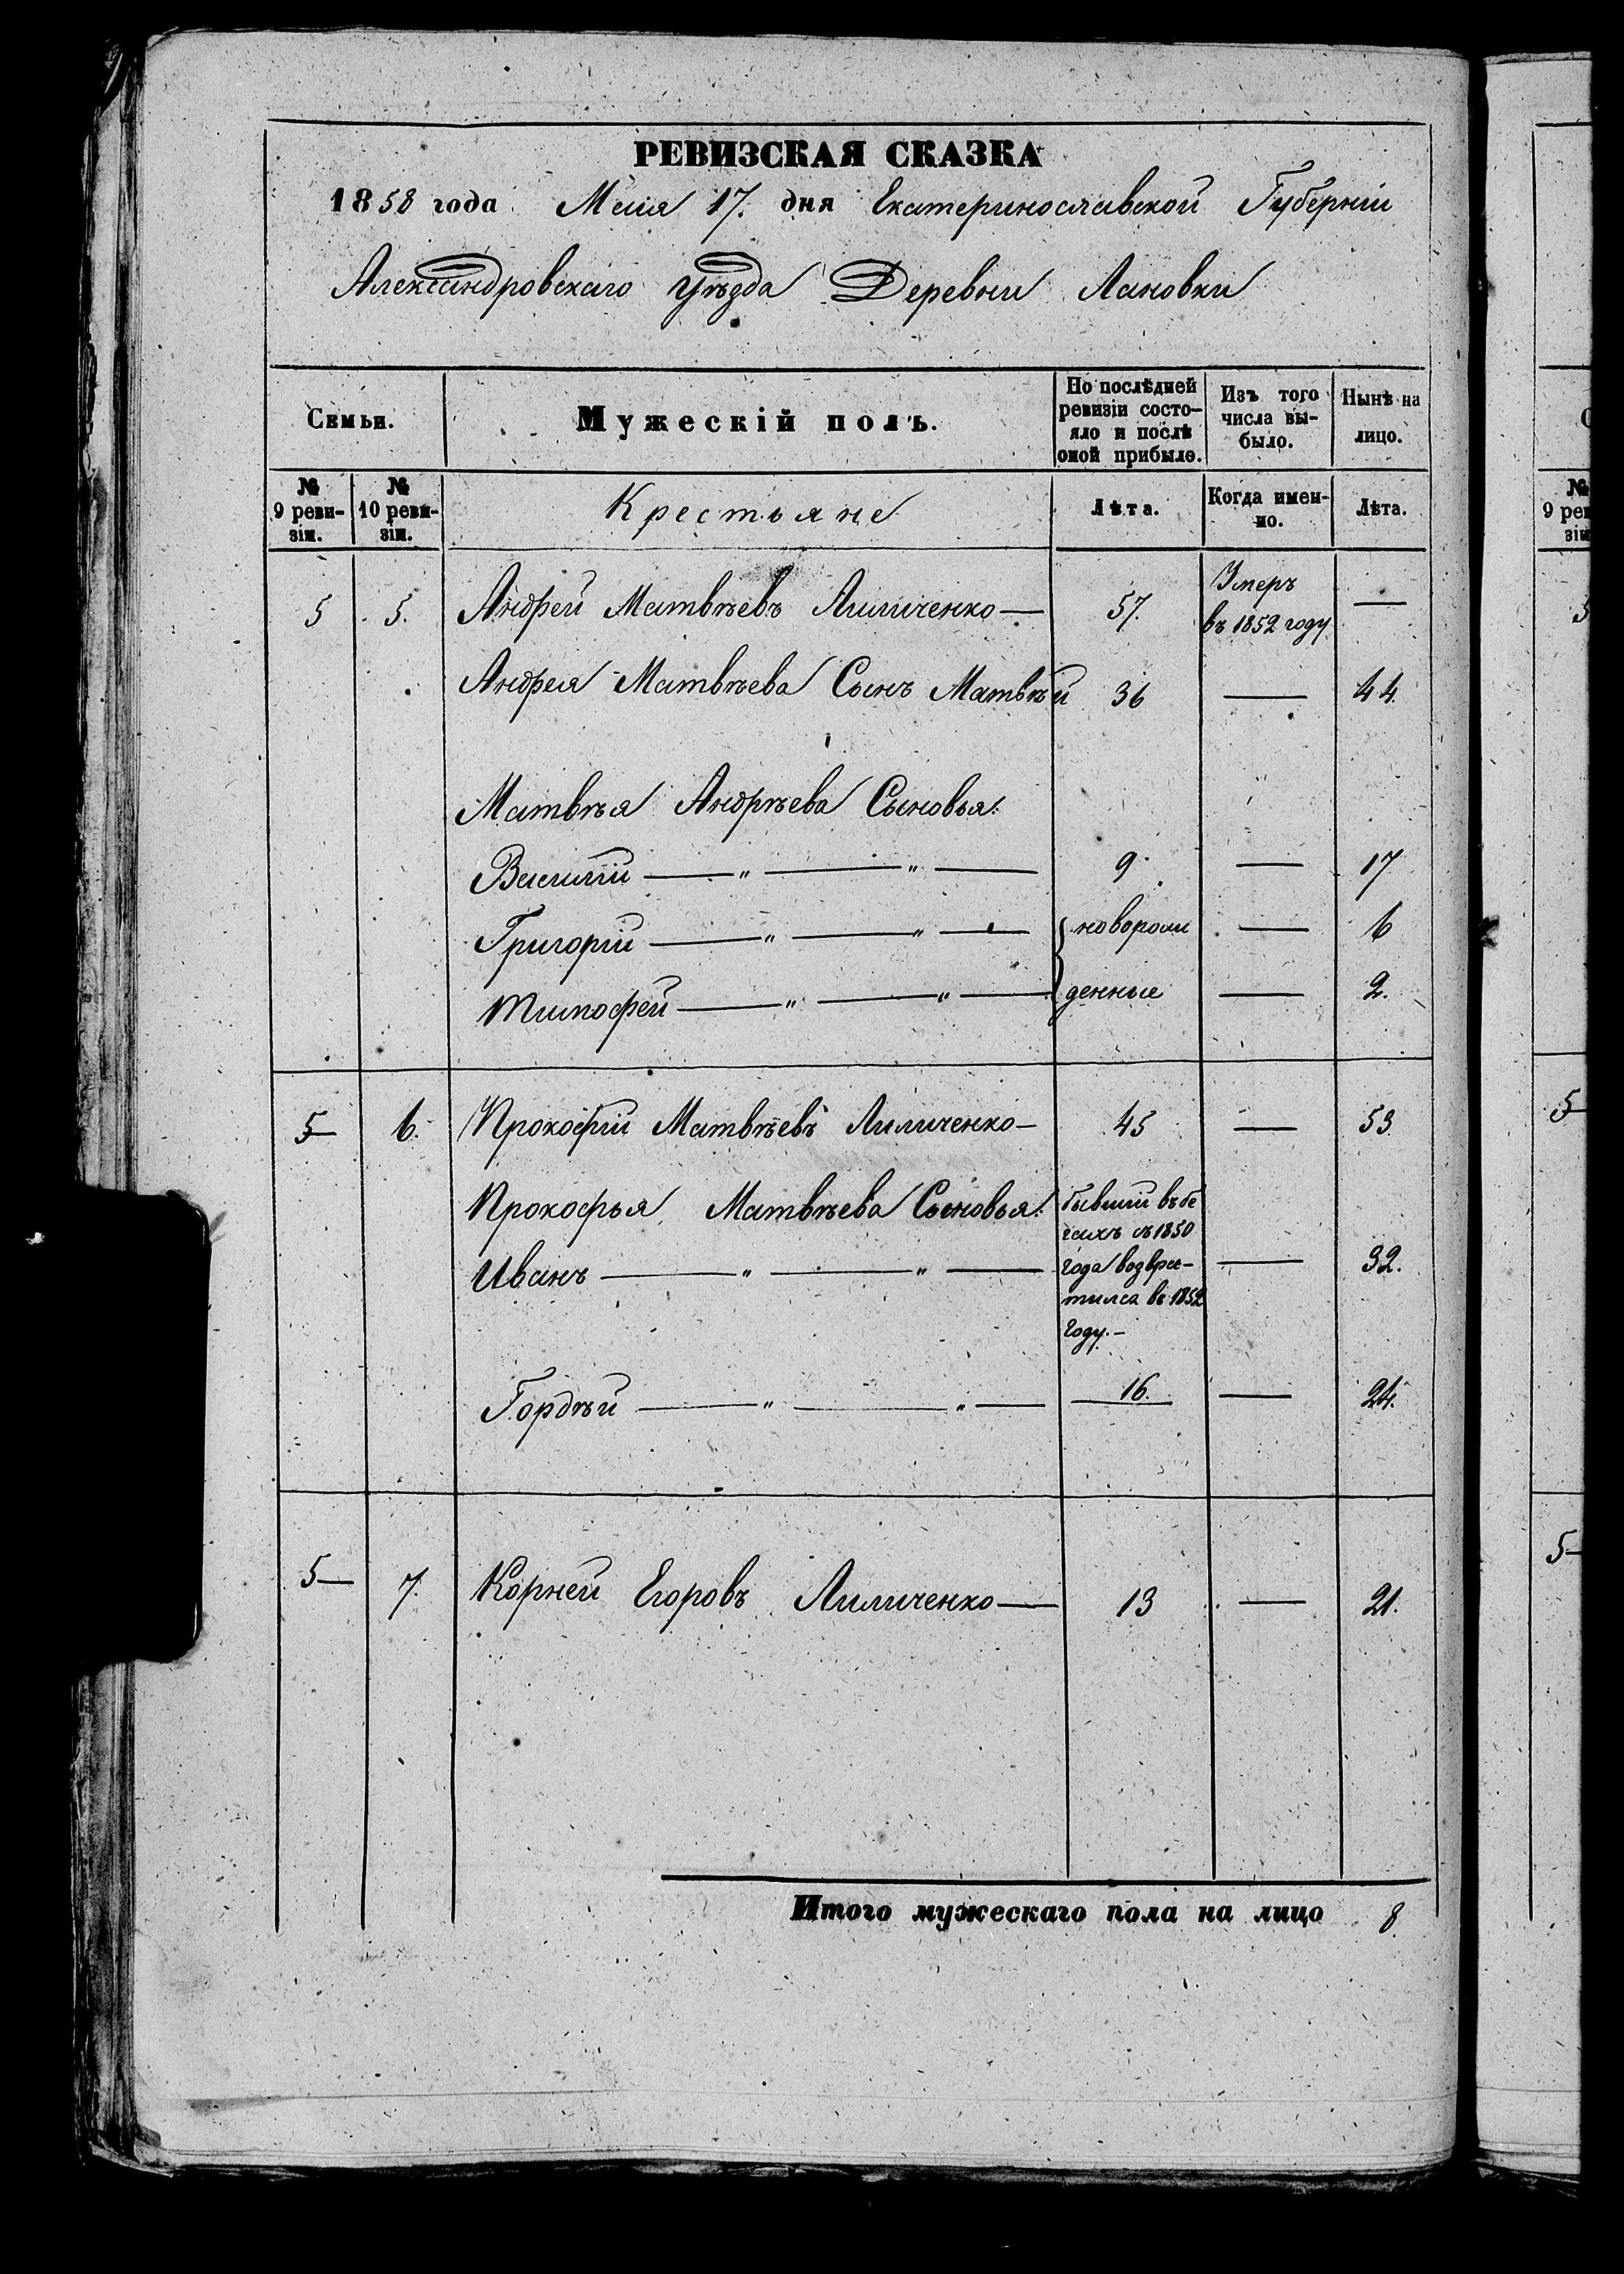 РЕВИЗСКАЯ СКАЗКА
1858 года Маія 17. дня Екатеринославской Губерніи
Александровскаго Уѣзда Деревни Лановки
Семьи. Мужескій полъ. По послѣдней ревизіи состояло и послѣ оной прибыло. Изъ того числа выбыло. Нынѣ на лицо.
№ 9 ревизіи. № 10 ревизіи. Крестьяне Лѣта. Когда именно. Лѣта.
5 5. Андрей Матвѣевъ Лиличенко — 57. Умеръ въ 1852 году —
Андрея Матвѣева Сынъ Матвѣй 36 — 44.
Матвѣя Андрѣева Сыновья:
Василій — „ — „ — 9. — 17
Григорій — „ — „ — { новорож — 6
Тимофей — „ — „ — денные — 2.
5— 6. Прокофій Матвѣевъ Лиличенко — 45 — 53
Прокофья Матвѣева Сыновья: бывшій въ бе
гахъ съ 1850
Иванъ — „ — „ — года возвра- — 32.
тился въ 1852
году. —
Гордѣй — „ — „ — 16. — 24.
5— 7. Корней Егоровъ Лиличенко — 13 — 21.
Итого мужескаго пола на лицо 8.
№
9 рев
зіи
5
5—
5—